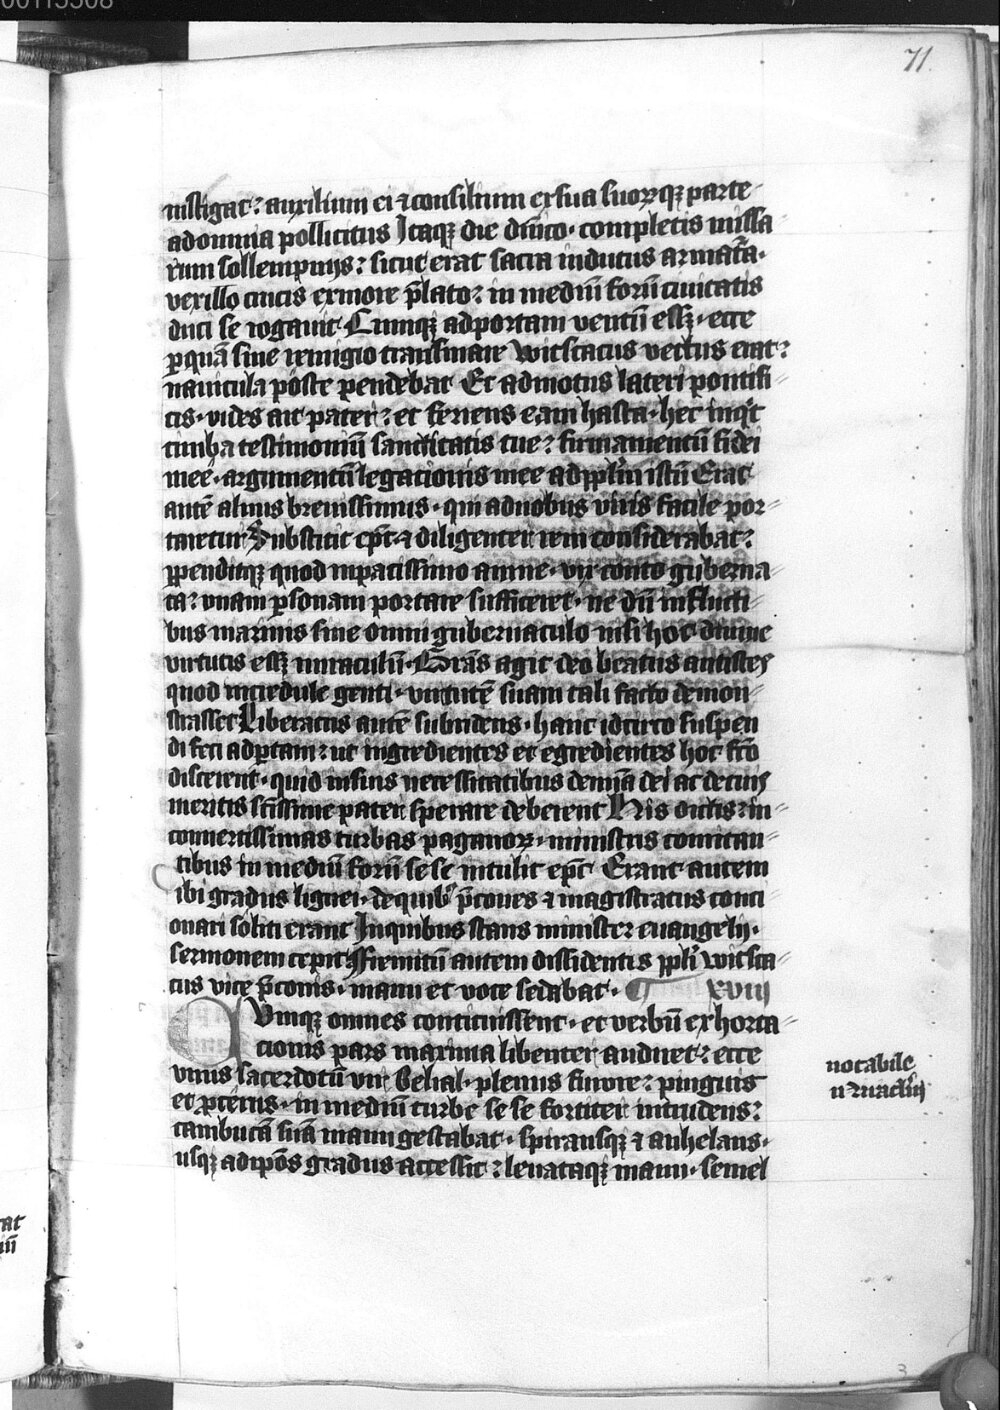 00115508
71.
instigat: auxilium ei ⁊ consilium ex sua suorꝝqꝫ parte
adomnia pollicitus Itaqꝫ die dn̄ico· completis missa-
rum sollempniis: sicut erat sacra indutus armat̄a·
vexillo crucis ex more p̄lato: in mediū forū ciuitatis
duci se rogauit· Cumqꝫ adportam ventū essꝫ· ecce
ꝑquā sine remigio transmare Witstacus vectus erat:
nauicula pōste pendebat Et admotus lateri pontifi-
cis· vides ait pater: et feriens eam hasta· hec inqͥt
cimba testimoniū sanctitatis tue: firmamentū fidei
mee· argumentū legationis mee adpp̄lm istū Erat
autē alnus breuissimus· qui aduobus viris facile por-
taretur Substitit ep̄c ⁊ diligenter rem considerabat:
ꝑpenditqꝫ quod inpacatissimo amne· vix conto guberna-
ta: vnam ꝑsonam portare sufficeret· ne dū in flucti-
bus marinis sine omni gubernaculo nisi hoc diuine
virtutis essꝫ miraculū· Gr̄as agit deo beatus antistes
quod incredule genti· virtutē suam tali facto demon-
strasset Liberatus autē subridens· hanc idcirco suspen
di feci adp̄tam: ut ingredientes et egredientes hoc fc̄o
discerent· quid insuis necessitatibus demīa dei ac detuis
meritis sc̄issime pater sperare deberent His dictis: in-
confertissimas turbas paganorꝝ· ministris comitan-
tibus in mediū forū se se intulit ep̄c Erant autem
ibi gradus lignei· dequibꝰ p̄cones ⁊ magistratus conci
onari soliti erant Inquibus stans minister euangelii·
sermonem cepit Fremitū autem dissidentis pp̄li witsta-
cus vice p̄conis· manu et voce sedabat· ¶ xviii
Cvmqꝫ omnes conticuissent· et verbū exhorta-
tionis pars maxima libenter audiret: ecce
vnus sacerdotū vir Belial· plenus furore: pinguis
et ꝓcerus· in medium turbe se se fortiter intrudens:
cambucā suā manu gestabat· spiransqꝫ ⁊ anhelans·
usqꝫ adip̄os gradus accessit: leuataqꝫ manu· semel
notabile